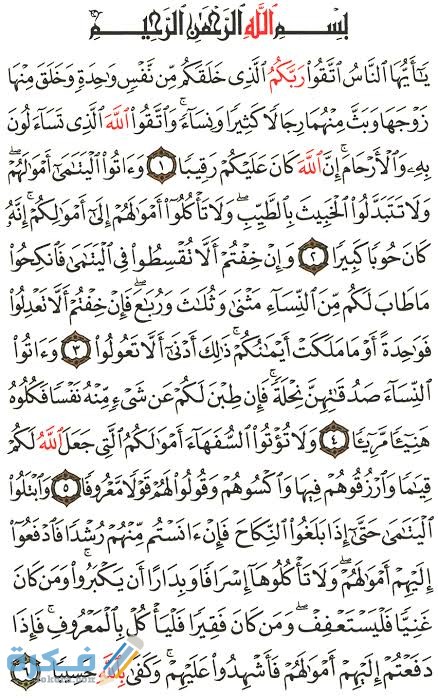 بِسْمِ اللَّهِ الرَّحْمَٰنِ الرَّحِيمِ
يَٰٓأَيُّهَا النَّاسُ اتَّقُوا۟ رَبَّكُمُ الَّذِى خَلَقَكُم مِّن نَّفْسٍ وَٰحِدَةٍ وَخَلَقَ مِنْهَا
زَوْجَهَا وَبَثَّ مِنْهُمَا رِجَالًا كَثِيرًا وَنِسَآءً ۚ وَاتَّقُوا۟ اللَّهَ الَّذِى تَسَآءَلُونَ
بِهِۦ وَالْأَرْحَامَ ۚ إِنَّ اللَّهَ كَانَ عَلَيْكُمْ رَقِيبًا ١ وَءَاتُوا۟ الْيَتَٰمَىٰٓ أَمْوَٰلَهُمْ ۖ
وَلَا تَتَبَدَّلُوا۟ الْخَبِيثَ بِالطَّيِّبِ ۖ وَلَا تَأْكُلُوٓا۟ أَمْوَٰلَهُمْ إِلَىٰٓ أَمْوَٰلِكُمْ ۚ إِنَّهُۥ
كَانَ حُوبًا كَبِيرًا ٢ وَإِنْ خِفْتُمْ أَلَّا تُقْسِطُوا۟ فِى الْيَتَٰمَىٰ فَانكِحُوا۟
مَا طَابَ لَكُم مِّنَ النِّسَآءِ مَثْنَىٰ وَثُلَٰثَ وَرُبَٰعَ ۖ فَإِنْ خِفْتُمْ أَلَّا تَعْدِلُوا۟
فَوَٰحِدَةً أَوْ مَا مَلَكَتْ أَيْمَٰنُكُمْ ۚ ذَٰلِكَ أَدْنَىٰٓ أَلَّا تَعُولُوا۟ ٣ وَءَاتُوا۟
النِّسَآءَ صَدُقَٰتِهِنَّ نِحْلَةً ۚ فَإِن طِبْنَ لَكُمْ عَن شَىْءٍ مِّنْهُ نَفْسًا فَكُلُوهُ
هَنِيٓـًٔا مَّرِيٓـًٔا ٤ وَلَا تُؤْتُوا۟ السُّفَهَآءَ أَمْوَٰلَكُمُ الَّتِى جَعَلَ اللَّهُ لَكُمْ
قِيَٰمًا وَارْزُقُوهُمْ فِيهَا وَاكْسُوهُمْ وَقُولُوا۟ لَهُمْ قَوْلًا مَّعْرُوفًا ٥ وَابْتَلُوا۟
الْيَتَٰمَىٰ حَتَّىٰٓ إِذَا بَلَغُوا۟ النِّكَاحَ فَإِنْ ءَانَسْتُم مِّنْهُمْ رُشْدًا فَادْفَعُوٓا۟
إِلَيْهِمْ أَمْوَٰلَهُمْ ۖ وَلَا تَأْكُلُوهَآ إِسْرَافًا وَبِدَارًا أَن يَكْبَرُوا۟ ۚ وَمَن كَانَ
غَنِيًّا فَلْيَسْتَعْفِفْ ۖ وَمَن كَانَ فَقِيرًا فَلْيَأْكُلْ بِالْمَعْرُوفِ ۚ فَإِذَا
دَفَعْتُمْ إِلَيْهِمْ أَمْوَٰلَهُمْ فَأَشْهِدُوا۟ عَلَيْهِمْ ۚ وَكَفَىٰ بِاللَّهِ حَسِيبًا ٦
فكرة